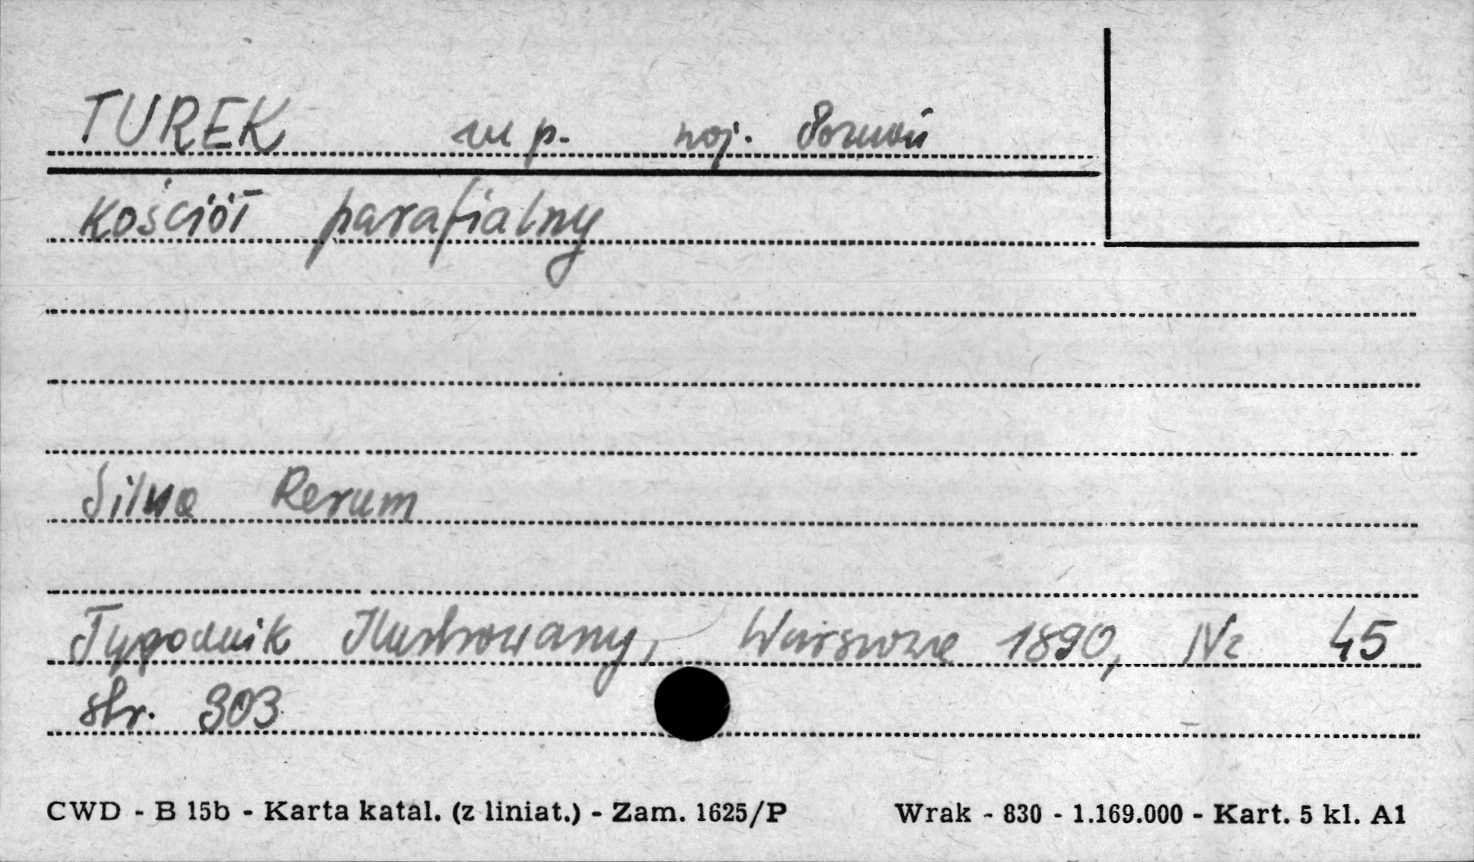 TUREK m p. woj. Poznań
Kościół parafialny
Silva Rerum
Tygodnik Ilustrowany, Warszawa 1890, Nr 45
str. 303
CWD - B 15b - Karta katal. (z liniat.) - Zam. 1625/P Wrak - 830 - 1.169.000 - Kart. 5 kl. A1